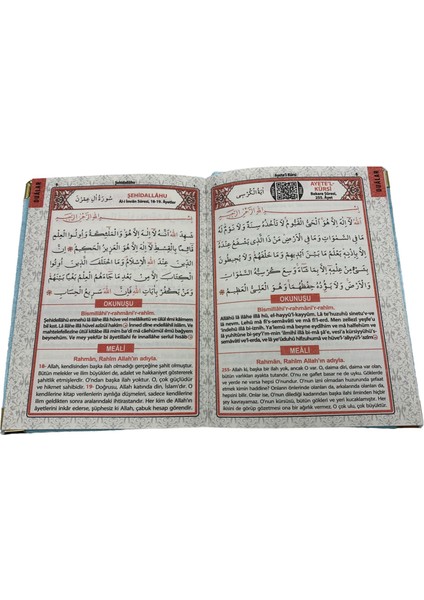 DUÂLAR
Şehidallâhu
سُورَةُ اٰلِ عِمْرٰنَ
ŞEHİDALLÂHU
Âl-i İmrân Sûresi, 18-19. Âyetler
شَهِدَ اللّٰهُ اَنَّهُ لَٓا اِلٰهَ اِلَّا هُوَ وَالْمَلٰٓئِكَةُ وَاُولُوا الْعِلْمِ
قَٓائِمًا بِالْقِسْطِ لَٓا اِلٰهَ اِلَّا هُوَ الْعَزِيزُ الْحَكِيمُ اِنَّ
الدِّينَ عِنْدَ اللّٰهِ الْاِسْلَامُ وَمَا اخْتَلَفَ الَّذِينَ اُوتُوا
الْكِتَابَ اِلَّا مِنْ بَعْدِ مَا جَٓاءَهُمُ الْعِلْمُ بَغْيًا بَيْنَهُمْ
وَمَنْ يَكْفُرْ بِاٰيَاتِ اللّٰهِ فَاِنَّ اللّٰهَ سَرِيعُ الْحِسَابِ
OKUNUŞU
Bismillâhi'r-rahmâni'r-rahîm.
Şehidellâhü ennehû lâ ilâhe illâ hüve vel melâiketü ve ulül ılmi kâimem
bil kıst. Lâ ilâhe illâ hüvel azîzül hakîm İnned dîne ındellahil islâm. Ve
mahtelefellezîne ûtül kitâbe illâ mim ba'di mâ câehümül ılmü bağyem
beynehüm. Ve mey yekfür bi âyetillahi fe innallâhe serîul hısâb
MEÂLİ
Rahmân, Rahîm Allah'ın adıyla.
18- Allah, kendisinden başka ilah olmadığı gerçeğine şahit olmuştur.
Bütün melekler ve ilim büyükleri de, adalet ve hakkaniyet göstererek
şahitlik etmişlerdir. O'ndan başka ilah yoktur. O, çok güçlüdür
ve hikmet sahibidir. 19- Doğrusu, Allah katında din, İslam'dır. O
kendilerine kitap verilenlerin ayrılığa düşmeleri, sadece kendilerine
ilim geldikten sonra aralarındaki ihtirastandır. Her kim de Allah'ın
âyetlerini inkâr ederse, şüphesiz ki Allah, çabuk hesap görendir.
DUÂLAR
Ayete'l Kürsi
اٰيَةُ الْكُرْسِى
AYETE'L-
KÜRSİ
Bakara Sûresi,
255. Âyet
اَللّٰهُ لَٓا اِلٰهَ اِلَّا هُوَ الْحَيُّ الْقَيُّومُ لَا تَأْخُذُهُ سِنَةٌ وَلَا نَوْمٌ لَهُ
مَا فِى السَّمٰوَاتِ وَمَا فِى الْاَرْضِ مَنْ ذَا الَّذِى يَشْفَعُ عِنْدَهُٓ
اِلَّا بِاِذْنِهِ يَعْلَمُ مَا بَيْنَ اَيْدِيهِمْ وَمَا خَلْفَهُمْ وَلَا يُحِيطُونَ
بِشَيْءٍ مِنْ عِلْمِهِ اِلَّا بِمَا شَٓاءَ وَسِعَ كُرْسِيُّهُ السَّمٰوَاتِ
وَالْاَرْضَ وَلَا يَؤُدُهُ حِفْظُهُمَا وَهُوَ الْعَلِيُّ الْعَظِيمُ
OKUNUŞU
Bismillâhi'r-rahmâni'r-rahîm.
Allâhü lâ ilâhe illâ hû, el-hayyü'l-kayyûm. Lâ te'huzuhû sinetu'v-ve
lâ nevm. Lehû mâ fi's-semâvâti ve mâ fi'l-erd. Men zellezî yeşfe'u
'indehû illâ bi-iznih. Ya'lemü mâ beyne eydîhim ve mâ halfehüm ve
lâ yuhîtûne bi-şey'i'm-min 'ılmihî illâ bimâ şâe. Vesi'a kürsiyyühü's-
semâvâti ve'l-erda ve lâ yeûdühû hifzuhumâ ve hüve'l-'aliyyü'l-'azîm
MEÂLİ
Rahmân, Rahîm Allah'ın adıyla.
255- Allah ki, başka bir ilah yok, ancak O var, daima diri, daima var olan,
bütün varlıkları ayakta tutandır. O'nu ne gaflet basar ne de uyku. Göklerde
ve yerde ne varsa hepsi O'nundur. O'nun izni olmadan huzurunda şefaat
etmek kimin haddine! Onların önlerinde olanları da, arkalarında olanları da
hepsini bilir. Onlar ise, O'nun dilediği kadarından başka ilminden hiçbir
şey kavrayamaz. O'nun kürsüsü, bütün gökleri ve yeri kucaklamıştır. Her
ikisini de görüp gözetmesi ona bir ağırlık vermez. O çok ulu, çok büyüktür.